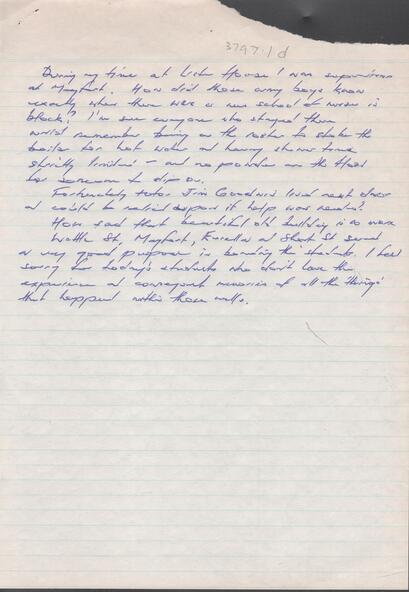 3797.1 d
During my time at Lister House I was supervisor
at Mayfort. How did those army boys know
exactly when there was a new school of nurses in
block? I'm sure everyone who stayed there
would remember being on the roster to stoke the
boiler for hot water and having shower time
strictly limited – and no powder on the floor
for someone to slip on.
Fortunately tutor Jim Goodwin lived next door
and could be relied upon if help was needed.
How sad that beautiful old building is no more
Wattle St, Mayfort, and Short St served
a very good purpose in boarding the students. I feel
sorry for today's students who don't have the
experience and consequent memories of all the 'things'
that happened within those walls.